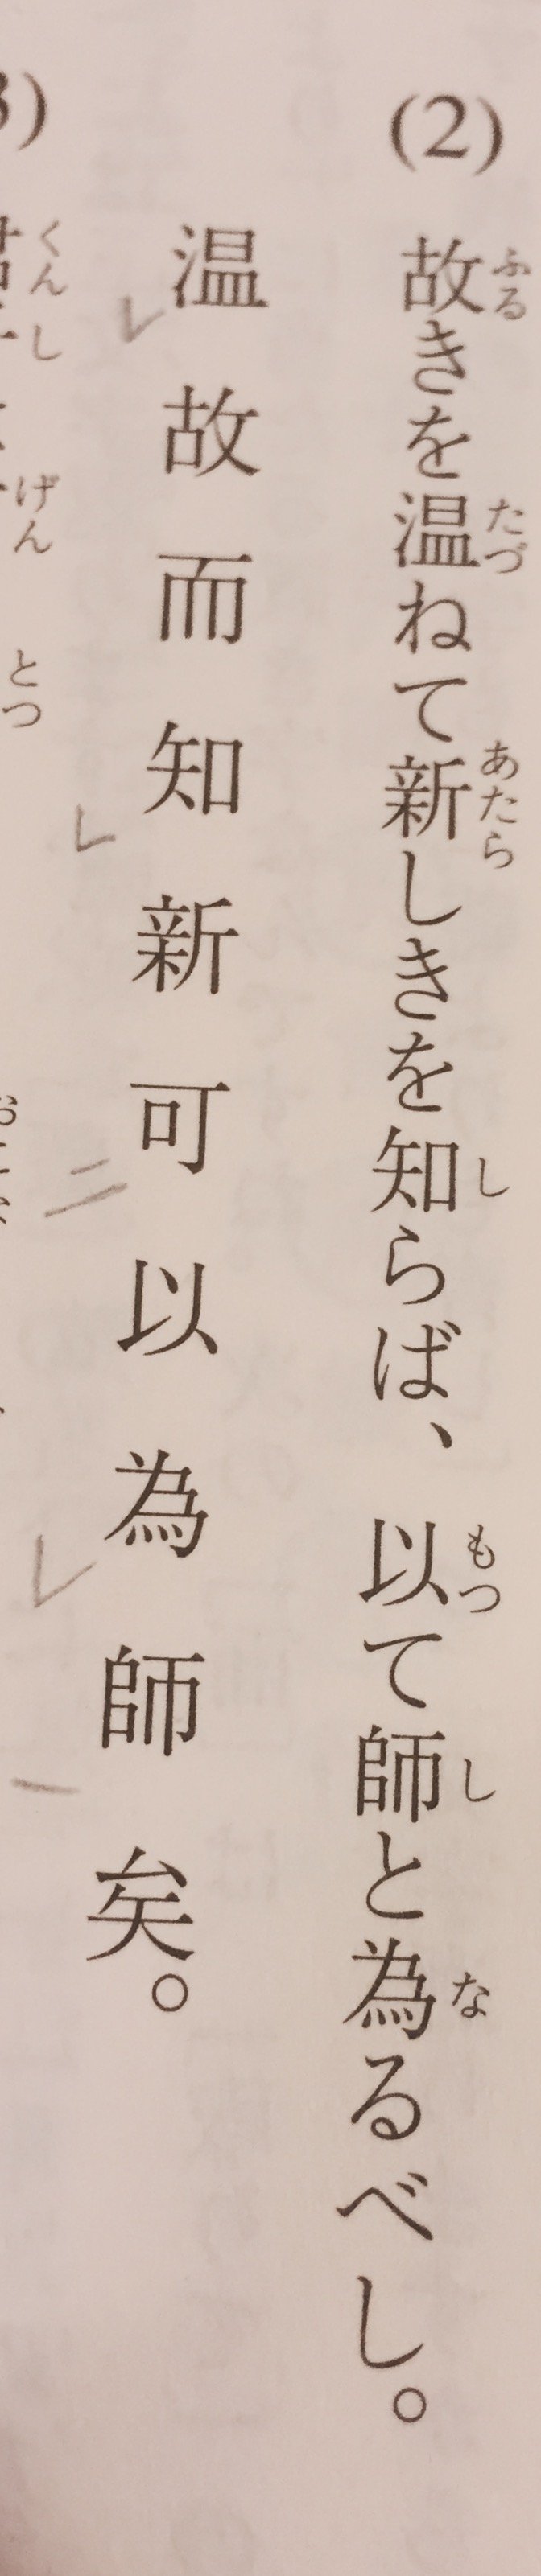 (2) 故きを温ねて新しきを知らば、以て師と為るべし。
ふる たづ あたら し もつ し な
温故而知新可以為師矣。
レ レ 二 レ 一
3)
くんし げん とつ